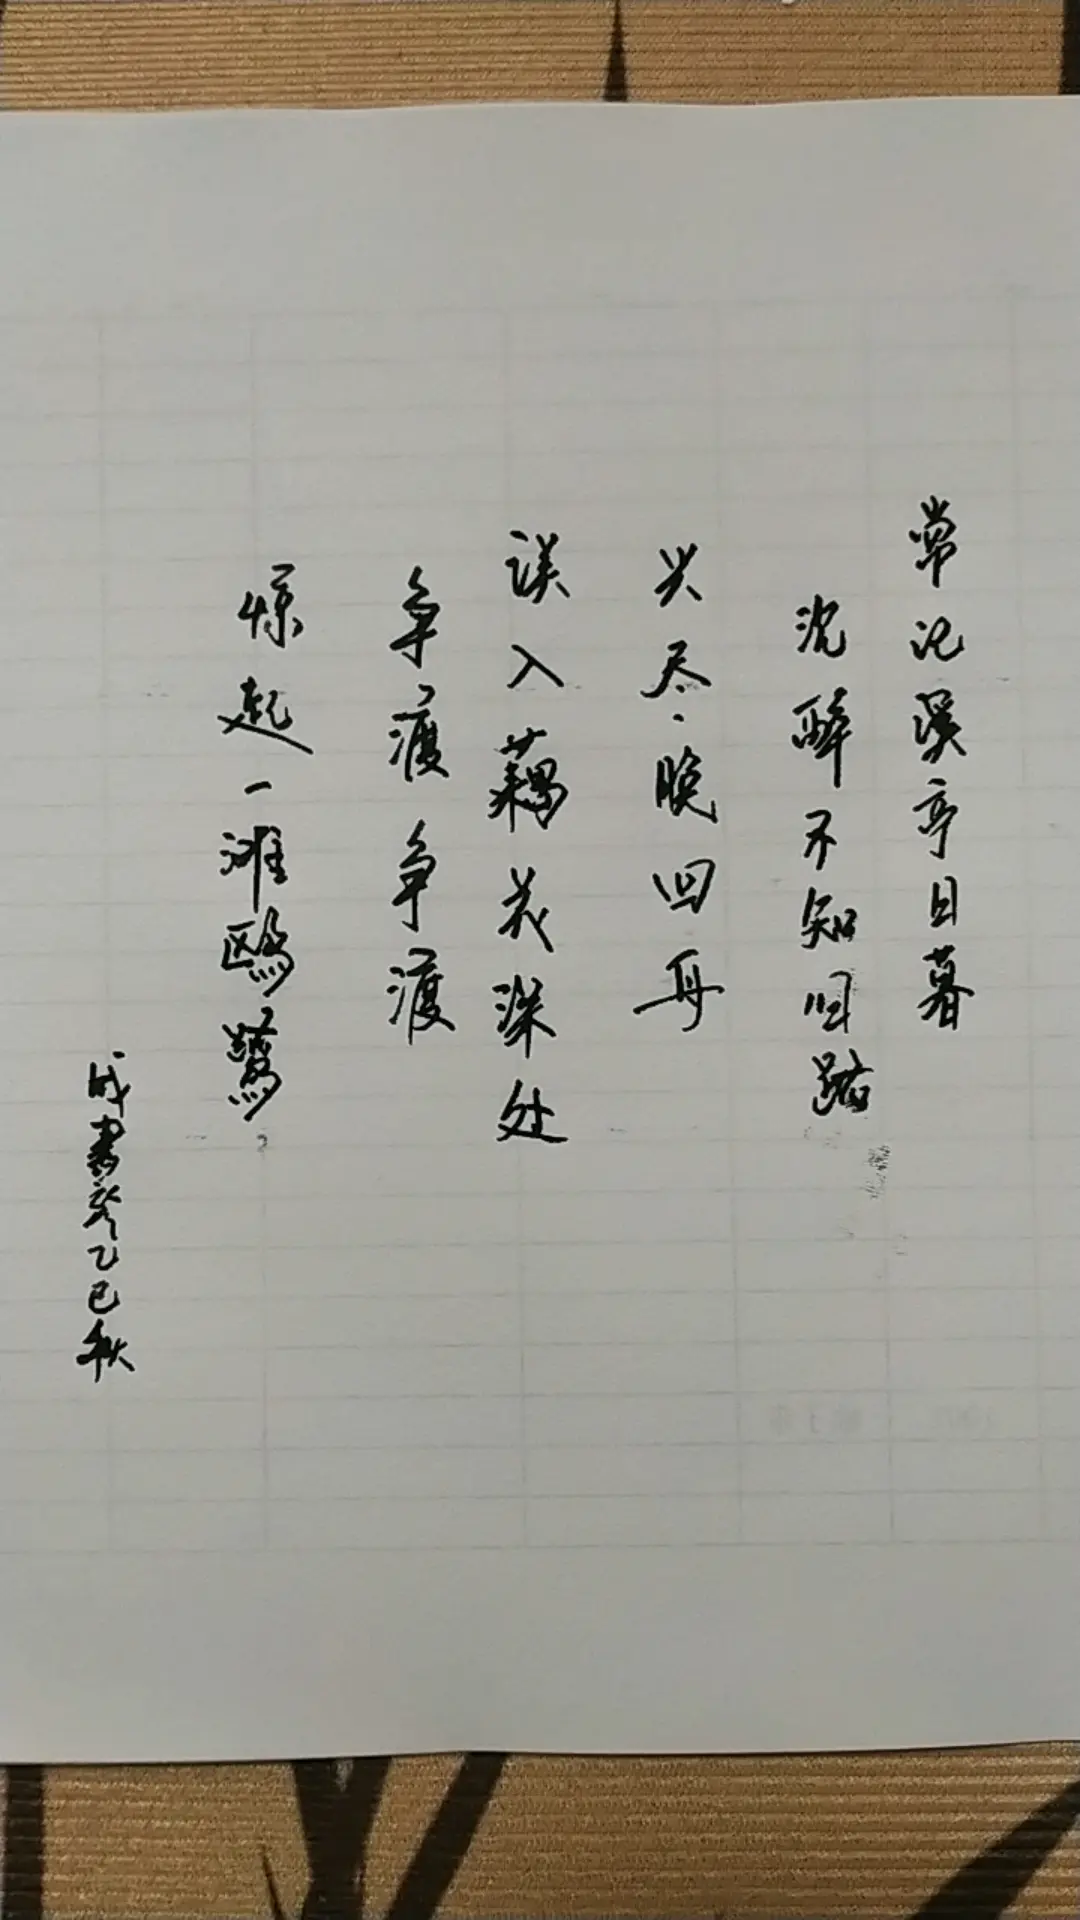 常记溪亭日暮
沉醉不知归路
兴尽晚回舟
误入藕花深处
争渡争渡
惊起一滩鸥鹭
成書於乙巳秋